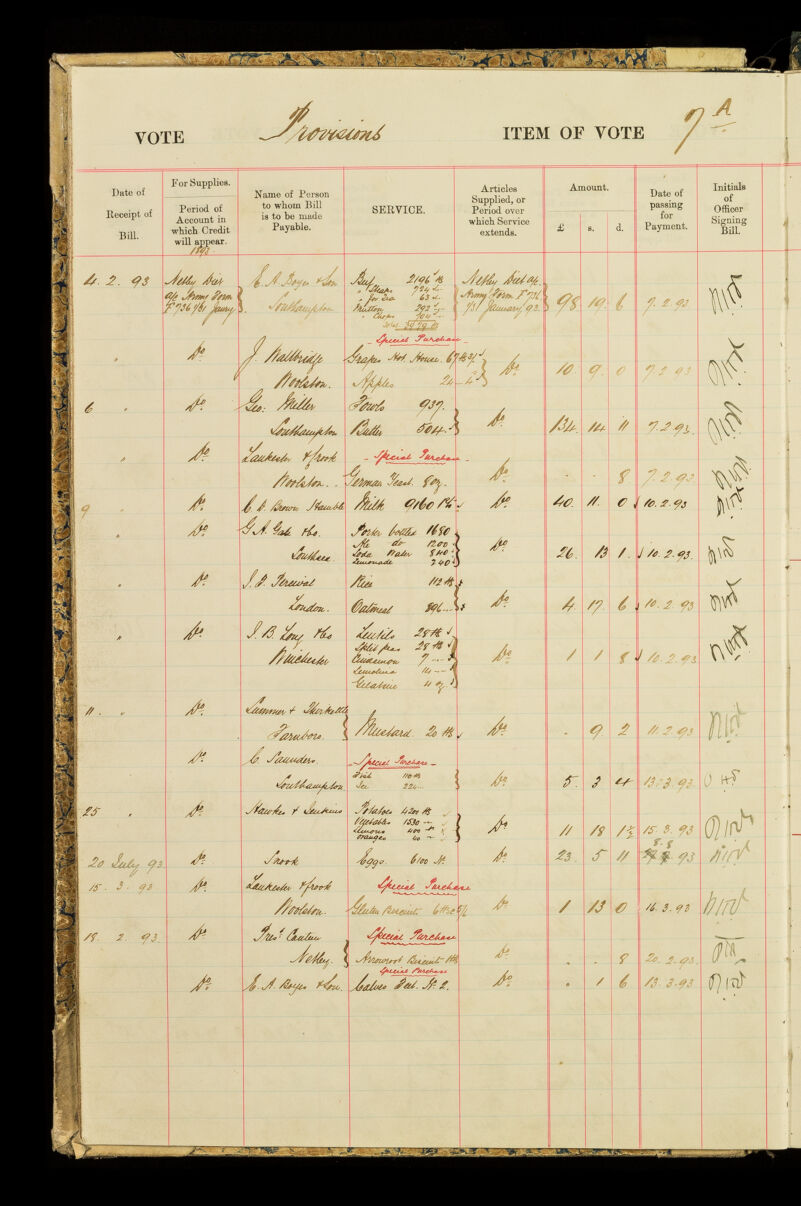 VOTE Provisions ITEM OF VOTE 7 A
Date of Receipt of Bill.
For Supplies. Period of Account in which Credit will appear.
Name of Person to whom Bill is to be made Payable.
SERVICE.
Articles Supplied, or Period over which Service extends.
Amount. £ s. d.
Date of passing for Payment.
Initials of Officer Signing Bill.
1893
4. 2. 93 Netley Diet E. A. Boyes & Son Beef 2196 lb Netley Diet a/c
a/c Army Form Southampton " Steaks 724 Army Form F 736
F 736 9/31 " for Tea 63 9/31 January 93 98 19. 6 7. 2. 93
Mutton 292
" Chops 704
Total 3979 lb
Special Purchase
" Do J. Walbridge Grapes Hot House. Do 10. 9. 0 7. 2 93
Woolston. Apples
6 " Do. Geo: Miller Fowls 937. Do 134. 14 11 7. 2. 93.
Southampton Butter 504
" Do Lankester & Crook Special Purchase
Woolston. German Yeast. 8 oz. Do . . 8 7. 2. 93
9 " Do. C. D. Brown Hamble Milk 9160 Pts Do 40. 11. 0 10. 2. 93
" Do G. A. Gale & Co. Porter bottles 1680
Southsea Ale do 1200 Do 26. 13 1. 10. 2. 93.
Soda Water 840
Lemonade 240
" Do J. D. Percival Rice 112 lb
London. Oatmeal 896 Do 4. 17. 6 10. 2. 93
" Do. J. B. Long & Co Lentils 28 lb
Winchester Split peas 28 lb Do 1 1 8 10. 2. 93
Cinnamon 7
Semolina 14
Gelatine 4 oz.
11. " Do. Lummer & Shorkettle
Farnboro. Mustard 20 lb Do . 9 2 11. 2. 93
Do. C. Saunders Special Purchase
Southampton Fish 110 lb Do 5. 3 4 13. 3. 93
Ice 224
25 " Do Hawkes & Jenkins Potatoes 4200 lb
Vegetables 1530 Do 11 18 1½ 15. 3. 93
Lemons 400
Oranges 40
20 July 93 Do. Snook Eggs. 6100 No. Do 23. 5 11 8. 8 93
15. 3. 93 Do. Lankester & Crook Special Purchase
Woolston. Gluten Biscuits 6 lb Do 1 13 0 16. 3. 93
18 2 93 Do Prest Canteen Special Purchase
Netley. Arrowroot Biscuits 1 lb Do . . 8 20. 2. 93.
Special Purchase
Do. E. A. Boyes & Son. Calves Feet. No. 2. Do . 1 6 13. 3. 93